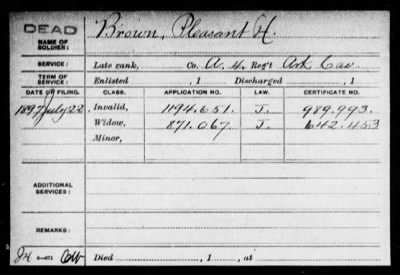 DEAD
NAME OF SOLDIER: Brown, Pleasant H.
SERVICE: Late rank, Co. A. 4. Reg't Ark Cav.
TERM OF SERVICE: Enlisted , 1 Discharged , 1
DATE OF FILING. CLASS. APPLICATION NO. LAW. CERTIFICATE NO.
1897 July 22 Invalid, 1194.651. J. 989.993.
Widow, 871.067. J. 642.453
Minor,
ADDITIONAL SERVICES:
REMARKS:
Died , 1 , at